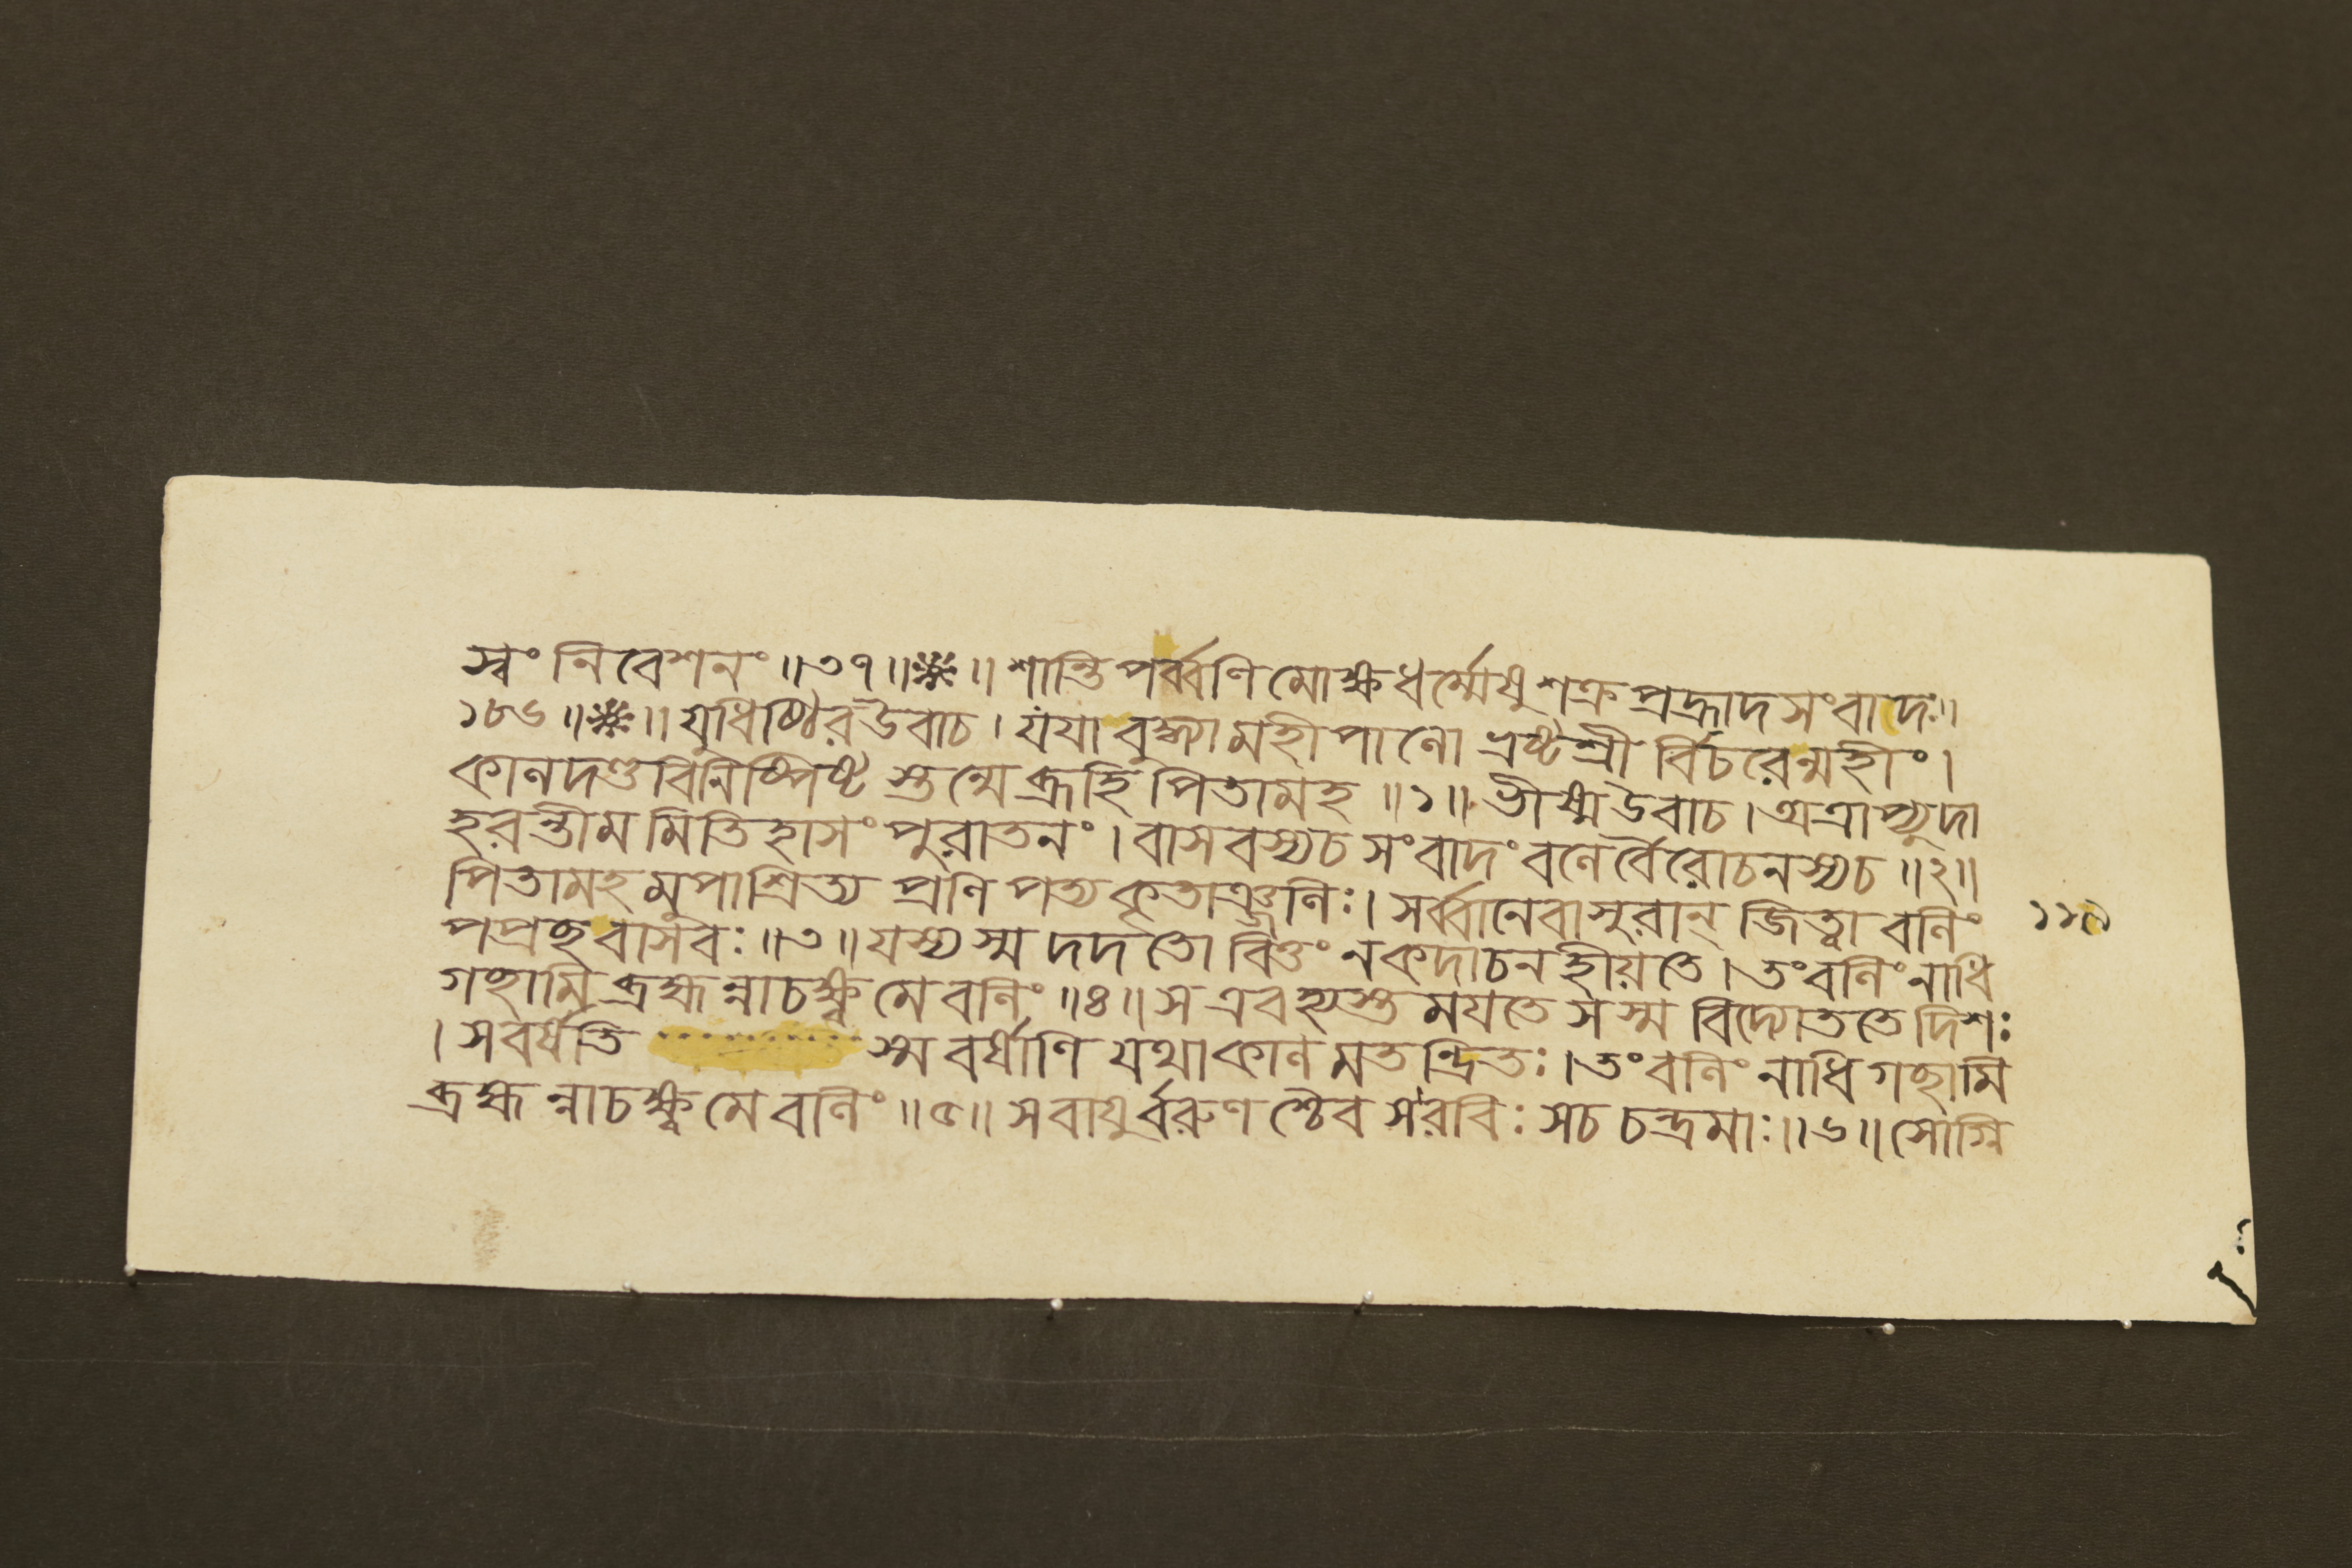 স্বং নিবেশনং ॥৩৭॥❋॥ শান্তি পর্ব্বণি মোক্ষধর্ম্মেষু শক্রপ্রহ্লাদসংবাদঃ॥
১৮৬॥❋॥ যুধিষ্ঠির উবাচ। যয়া বুদ্ধ্যা মহীপালো ভ্রষ্টশ্রী র্বিচরেন্মহীং।
কালদণ্ডবিনিষ্পিষ্ট স্তন্মে ব্রূহি পিতামহ ॥১॥ ভীষ্ম উবাচ। অত্রাপ্যুদা
হরন্তীম মিতিহাসং পুরাতনং। বাসবস্যচ সংবাদং বলের্বৈরোচনস্যচ ॥২॥
পিতামহ মুপাশ্রিত্য প্রণি পত্য কৃতাঞ্জলিঃ। সর্ব্বানেবাসুরান্ জিত্বা বলিং
পপ্রচ্ছ বাসবঃ ॥৩॥ যস্য স্ম দদতো বিত্তং নকদাচন হীয়তে। তং বলিং নাধি
গচ্ছামি ব্রহ্মন্নাচক্ষ্ব মে বলিং ॥৪॥ স এবহ্যস্ত ময়তে সস্ম বিদ্যোততে দিশঃ
। সবর্ষতি স্ম বর্ষাণি যথাকাল মতন্দ্রিতঃ। তং বলিং নাধিগচ্ছামি
ব্রহ্মন্নাচক্ষ্ব মে বলিং ॥৫॥ সবায়ুর্বরুণ শ্চৈব সরবিঃ সচ চন্দ্রমাঃ॥৬॥ সোগ্নি